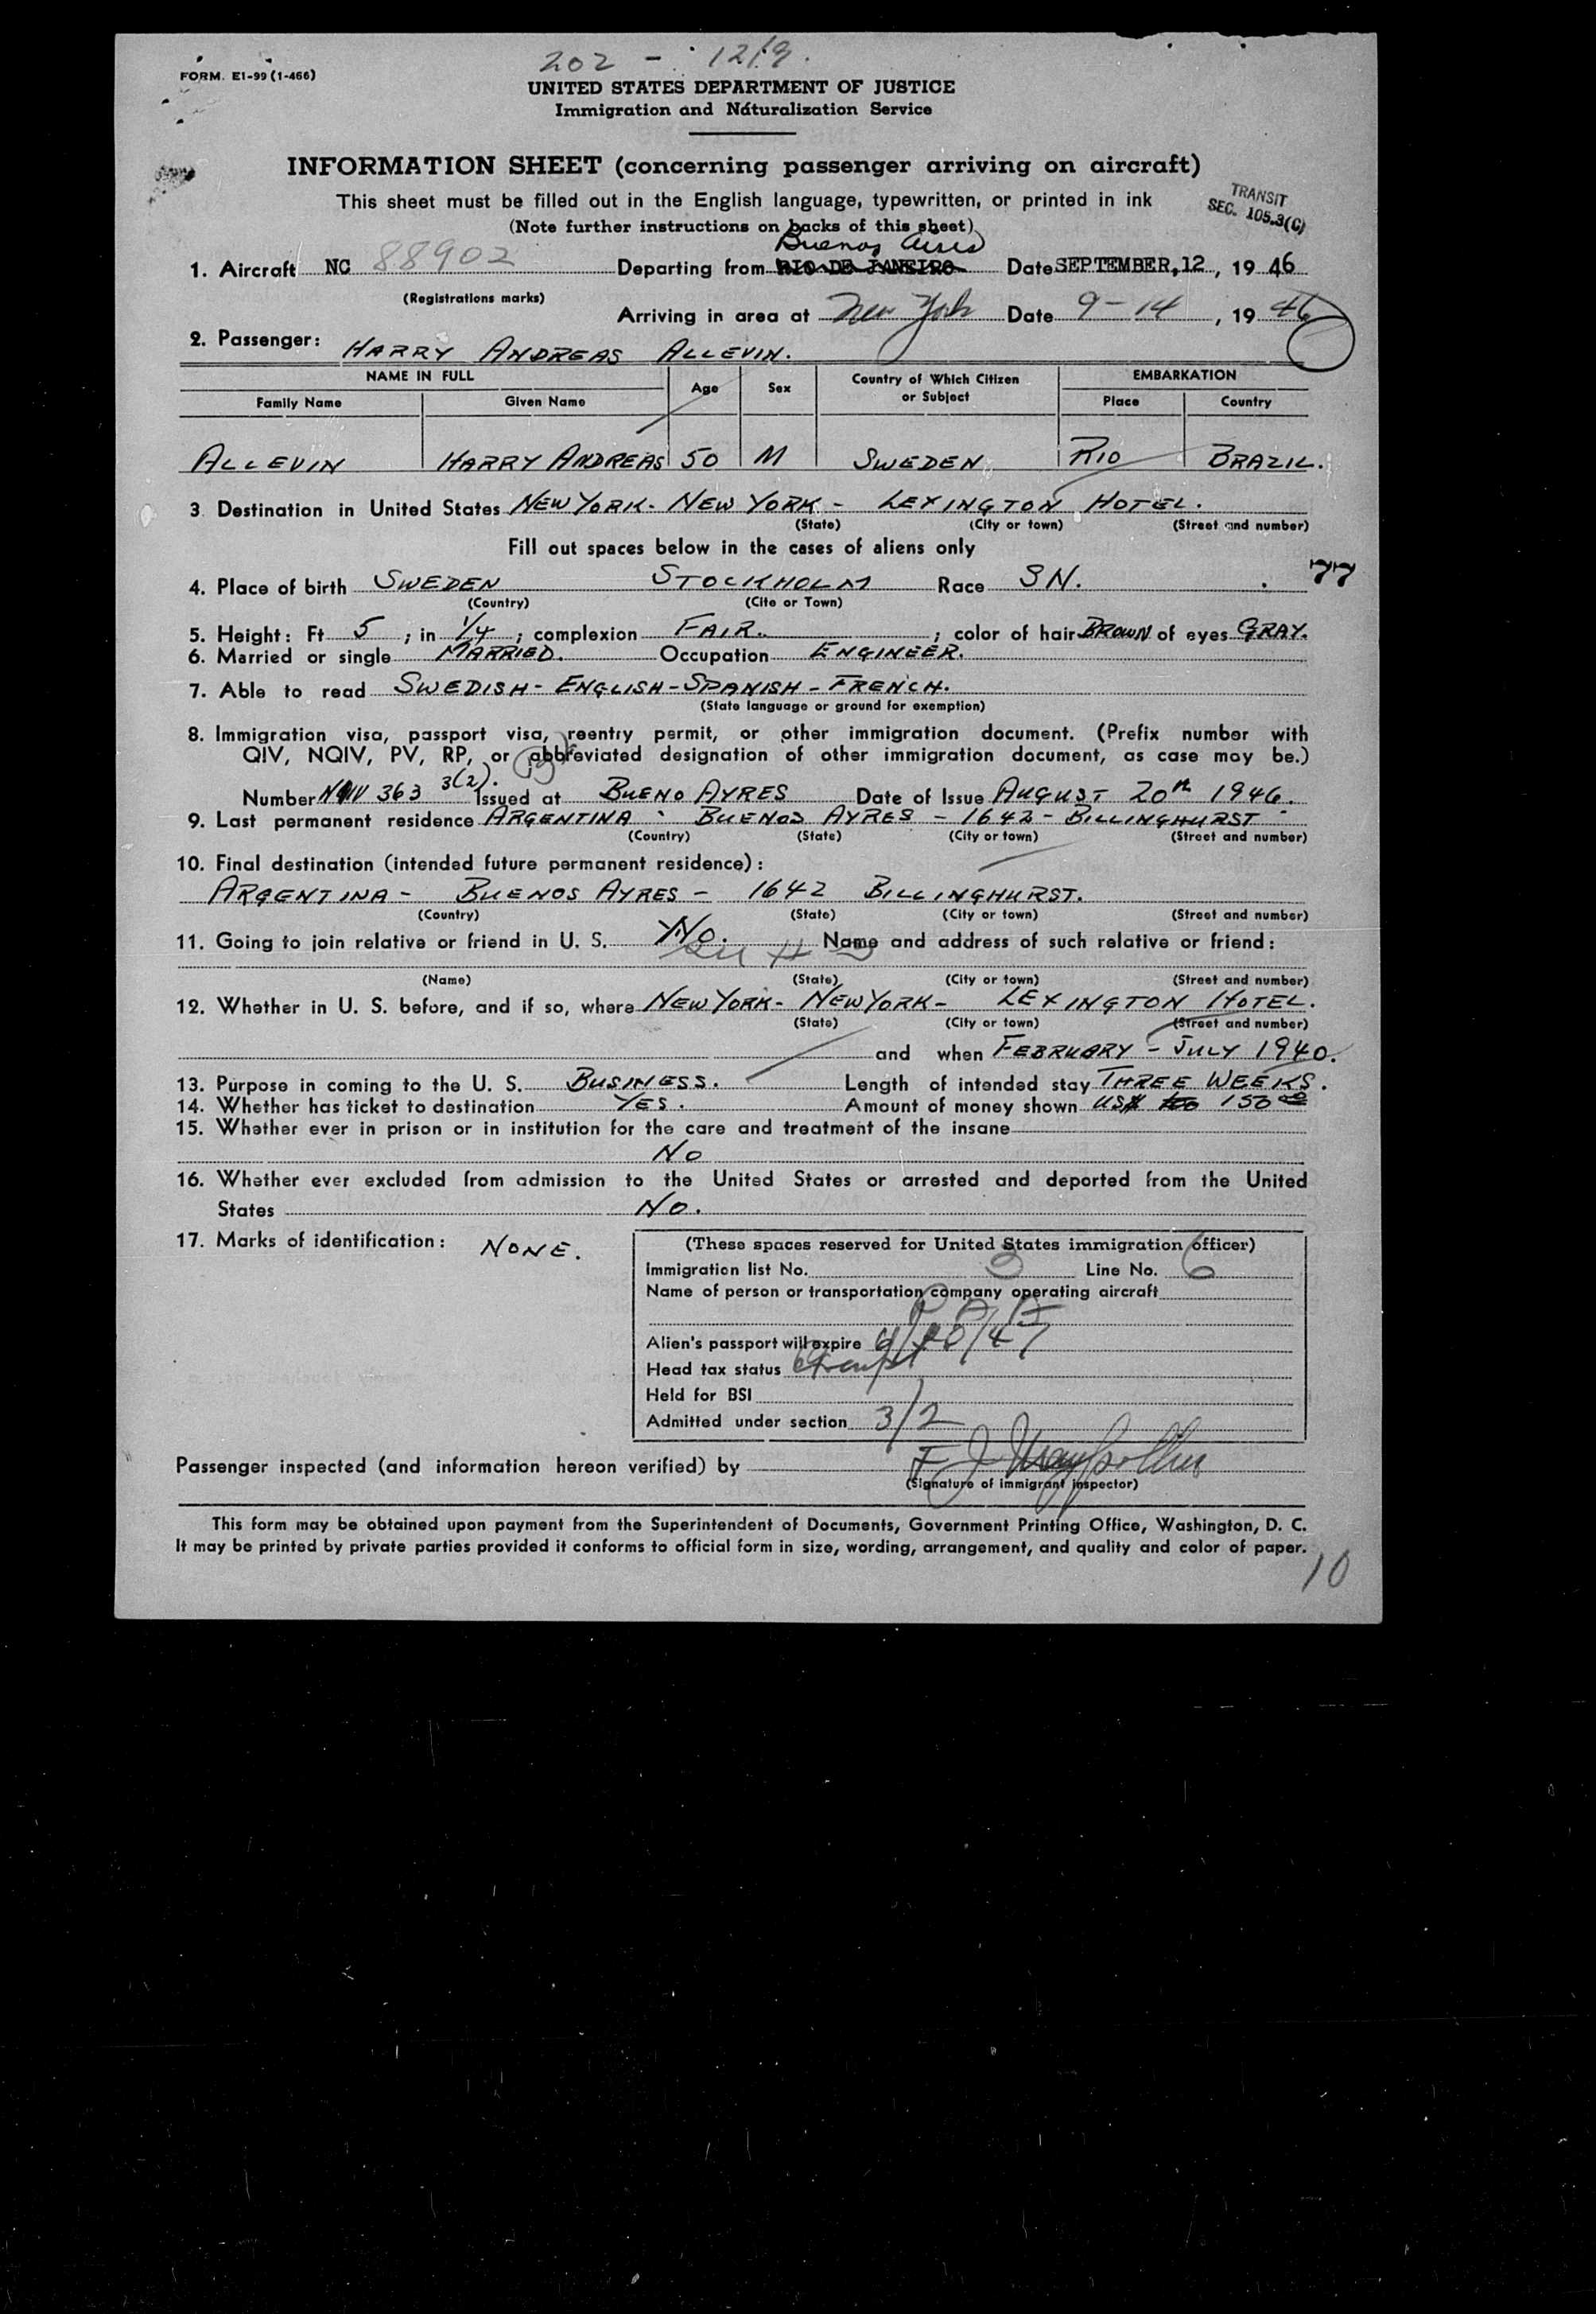 202 - 12/9.
FORM. EI-99 (1-466)
UNITED STATES DEPARTMENT OF JUSTICE
Immigration and Naturalization Service
INFORMATION SHEET (concerning passenger arriving on aircraft)
This sheet must be filled out in the English language, typewritten, or printed in ink
(Note further instructions on backs of this sheet)
TRANSIT
SEC. 105.3(C)
Buenos Aires
1. Aircraft NC 88902 Departing from RIO DE JANEIRO Date SEPTEMBER, 12, 19 46
(Registrations marks)
Arriving in area at New York Date 9-14, 19 46
2. Passenger: HARRY ANDREAS ALLEVIN.
NAME IN FULL Age Sex Country of Which Citizen or Subject EMBARKATION
Family Name Given Name Place Country
ALLEVIN HARRY ANDREAS 50 M SWEDEN RIO BRAZIL.
3 Destination in United States NEW YORK - NEW YORK - LEXINGTON HOTEL.
(State) (City or town) (Street and number)
Fill out spaces below in the cases of aliens only
77
4. Place of birth SWEDEN STOCKHOLM Race SN.
(Country) (Cite or Town)
5. Height: Ft 5 ; in 1/4 ; complexion FAIR. ; color of hair BROWN of eyes GRAY.
6. Married or single MARRIED. Occupation ENGINEER.
7. Able to read SWEDISH - ENGLISH - SPANISH - FRENCH.
(State language or ground for exemption)
8. Immigration visa, passport visa, reentry permit, or other immigration document. (Prefix number with
QIV, NQIV, PV, RP, or abbreviated designation of other immigration document, as case may be.)
Number 363 3(2). Issued at BUENO AYRES Date of Issue AUGUST 20th 1946.
9. Last permanent residence ARGENTINA - BUENOS AYRES - 1642 - BILLINGHURST
(Country) (State) (City or town) (Street and number)
10. Final destination (intended future permanent residence):
ARGENTINA - BUENOS AYRES - 1642 BILLINGHURST.
(Country) (State) (City or town) (Street and number)
11. Going to join relative or friend in U. S. No. Name and address of such relative or friend:
(Name) (State) (City or town) (Street and number)
12. Whether in U. S. before, and if so, where NEW YORK - NEW YORK - LEXINGTON HOTEL.
(State) (City or town) (Street and number)
and when FEBRUARY - JULY 1940.
13. Purpose in coming to the U. S. BUSINESS. Length of intended stay THREE WEEKS.
14. Whether has ticket to destination YES. Amount of money shown US$ 150
15. Whether ever in prison or in institution for the care and treatment of the insane
NO
16. Whether ever excluded from admission to the United States or arrested and deported from the United
States NO.
17. Marks of identification: NONE.
(These spaces reserved for United States immigration officer)
Immigration list No. 3 Line No. 6
Name of person or transportation company operating aircraft
P A A
Alien's passport will expire
Head tax status Exempt
Held for BSI
Admitted under section 3/2
Passenger inspected (and information hereon verified) by
(Signature of immigrant inspector)
This form may be obtained upon payment from the Superintendent of Documents, Government Printing Office, Washington, D. C.
It may be printed by private parties provided it conforms to official form in size, wording, arrangement, and quality and color of paper.
10